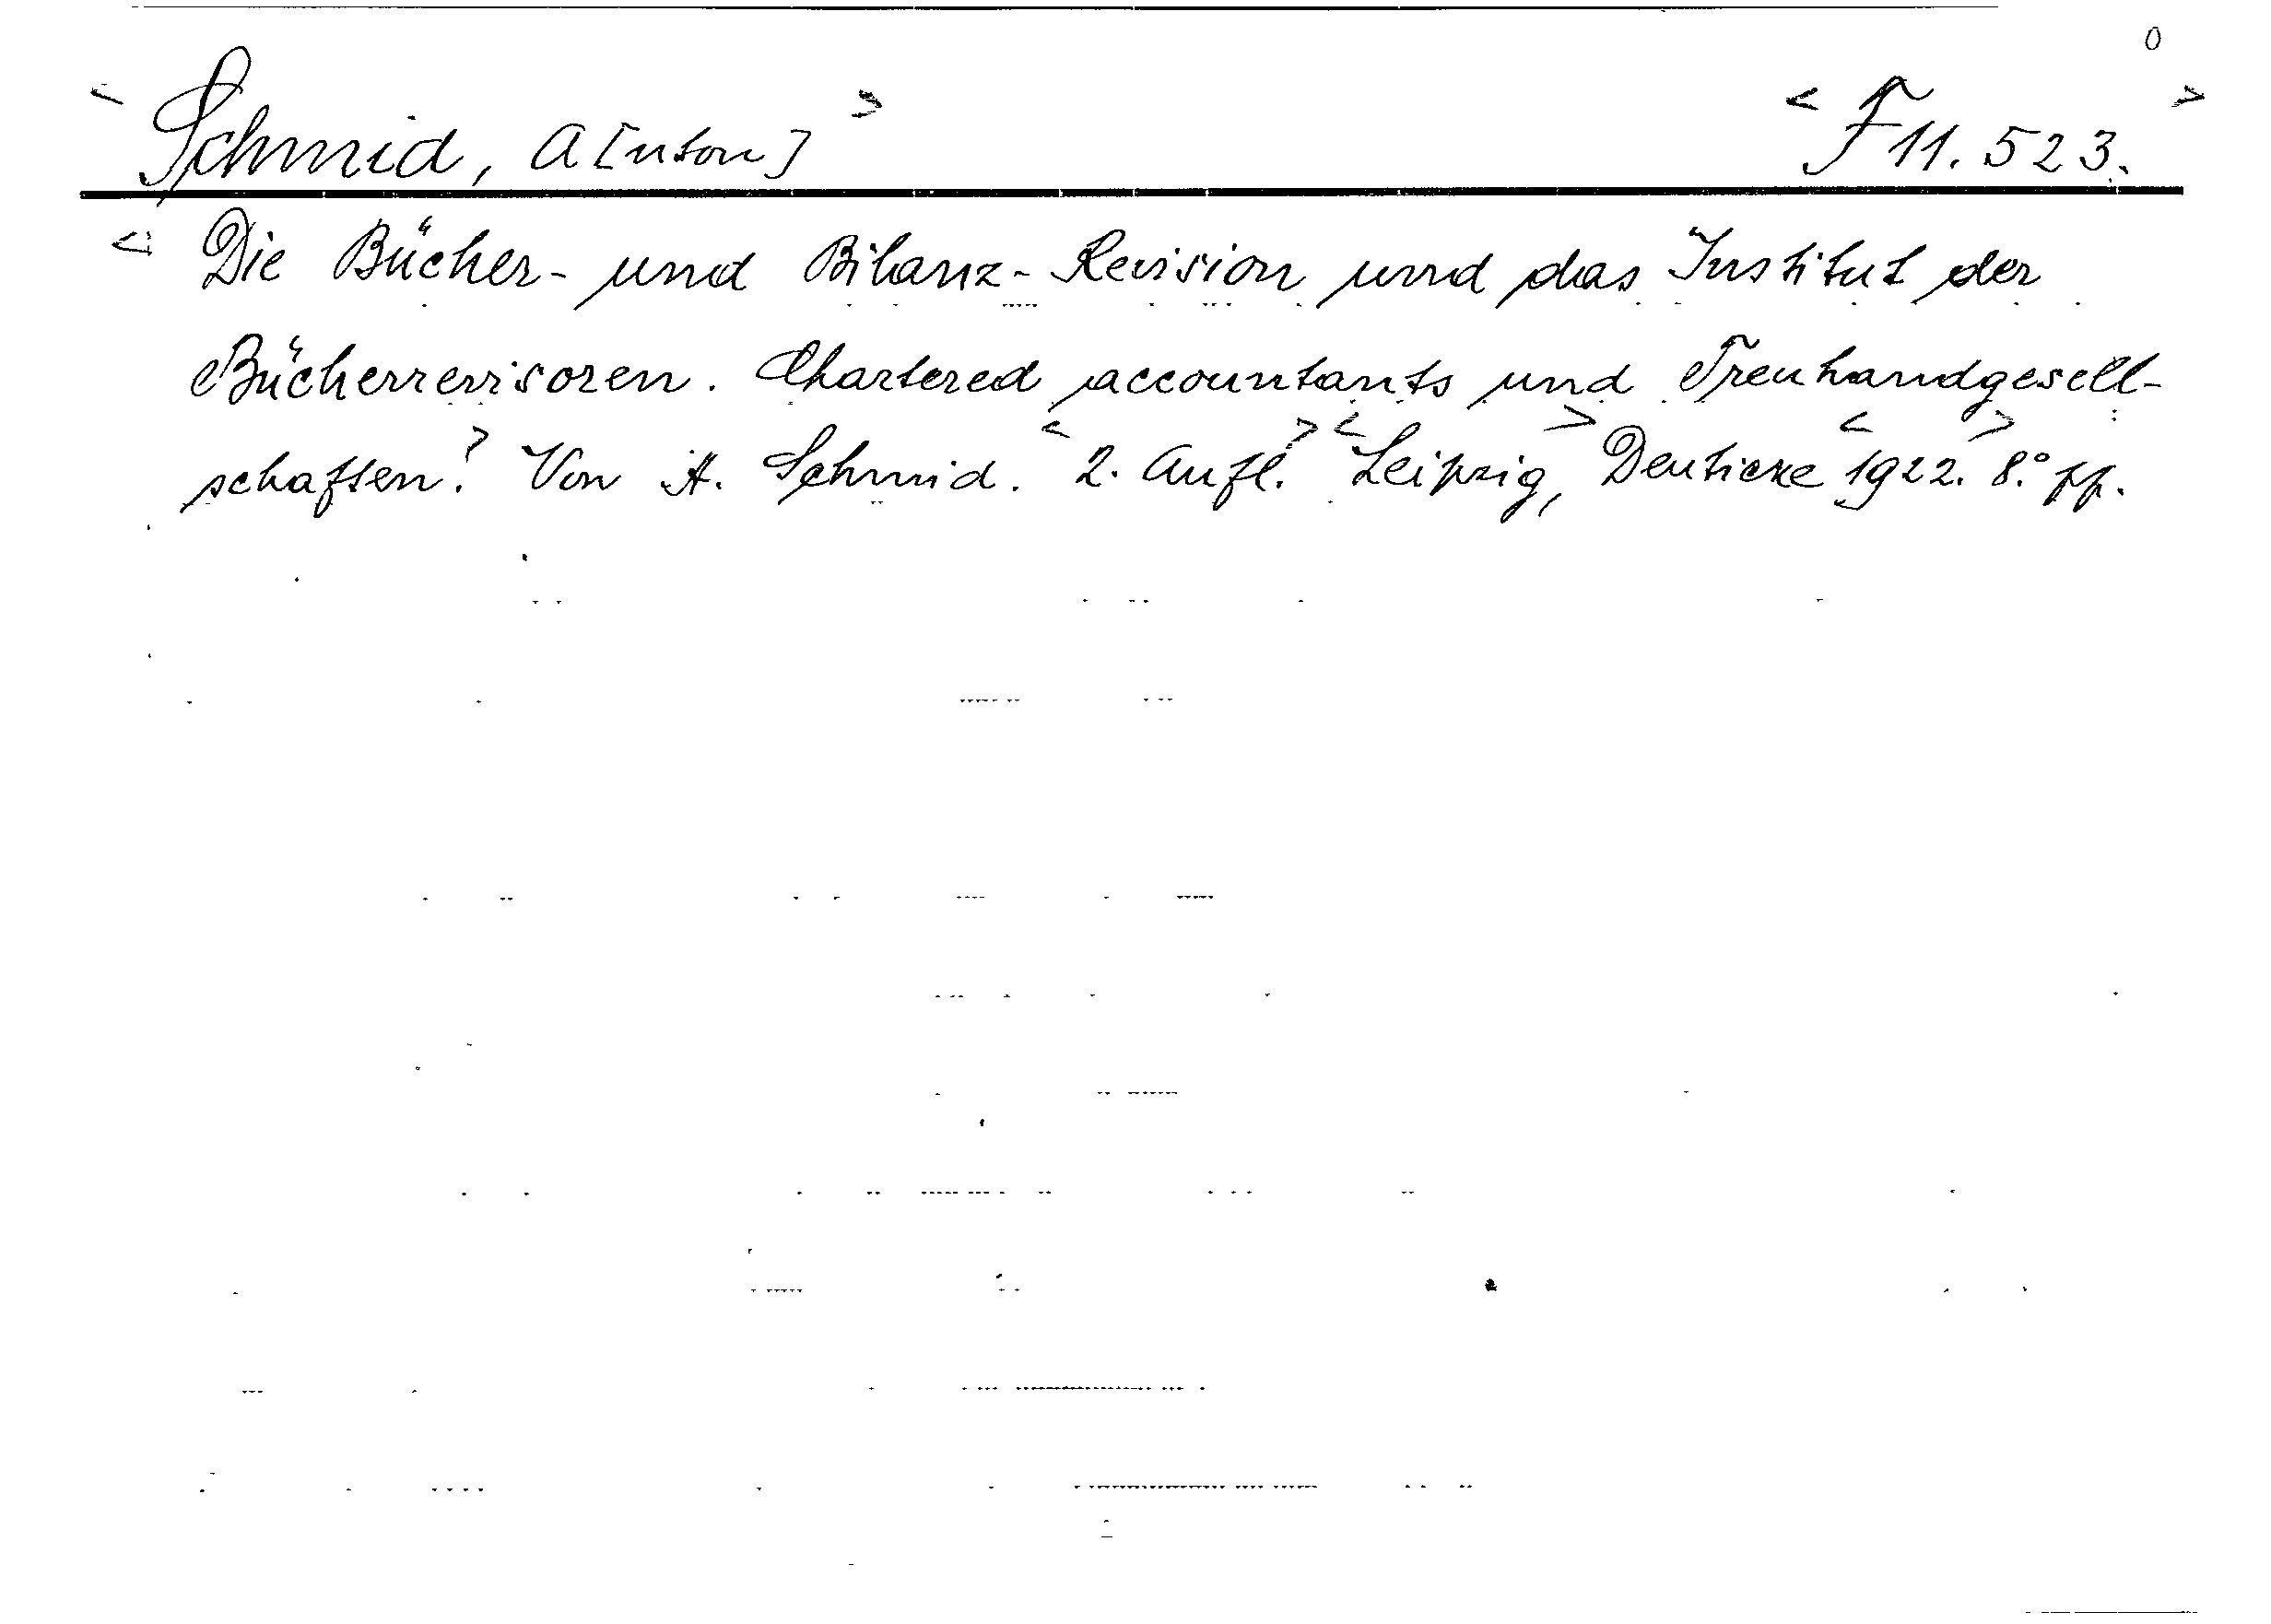 0
< Schmid, A[nton] > < F 11. 523. >
< Die Bücher- und Bilanz-Revision und das Institut der
Bücherrevisoren. Chartered accountants und Treuhandgesell-
schaften.> Von A. Schmid. < 2. Aufl. > < Leipzig, > Deuticke < 1922. > 8.° pp.